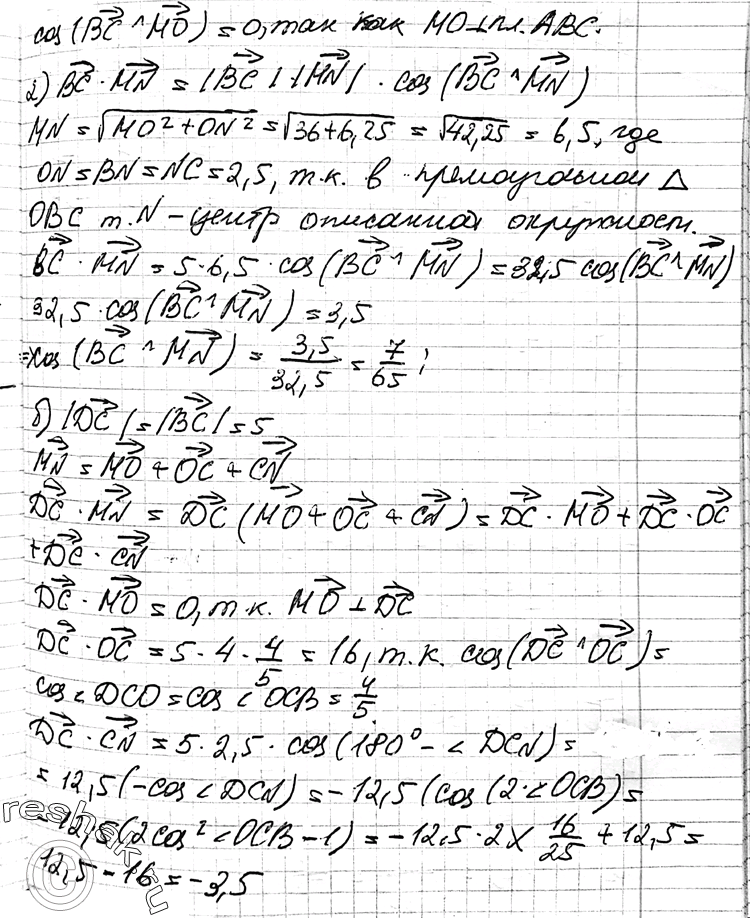 cos(B͞C ^ M͞O) = 0, так как MO ⊥ пл. ABC.
2) B͞C · M͞N = |B͞C| · |M͞N| · cos(B͞C ^ M͞N)
MN = √(MO² + ON²) = √(36 + 6,25) = √42,25 = 6,5, где
ON = BN = NC = 2,5, т.к. в прямоугольном △
OBC т. N – центр описанной окружност.
B͞C · M͞N = 5 · 6,5 · cos(B͞C ^ M͞N) = 32,5 cos(B͞C ^ M͞N)
32,5 · cos(B͞C ^ M͞N) = 3,5
=> cos(B͞C ^ M͞N) = 3,5/32,5 = 7/65;
б) |D͞C| = |B͞C| = 5
M͞N = M͞O + O͞C + C͞N
D͞C · M͞N = D͞C (M͞O + O͞C + C͞N) = D͞C · M͞O + D͞C · O͞C
+ D͞C · C͞N
D͞C · M͞O = 0, т.к. M͞O ⊥ D͞C
D͞C · O͞C = 5 · 4 · 4/5 = 16, т.к. cos(D͞C ^ O͞C) =
cos < DCO = cos < OCB = 4/5.
D͞C · C͞N = 5 · 2,5 · cos(180° – < DCN) =
= 12,5 (–cos < DCN) = –12,5 (cos (2 · < OCB) =
= –12,5 (2cos² < OCB – 1) = –12,5 · 2 × 16/25 + 12,5 =
12,5 – 16 = –3,5
reshak.ru
©